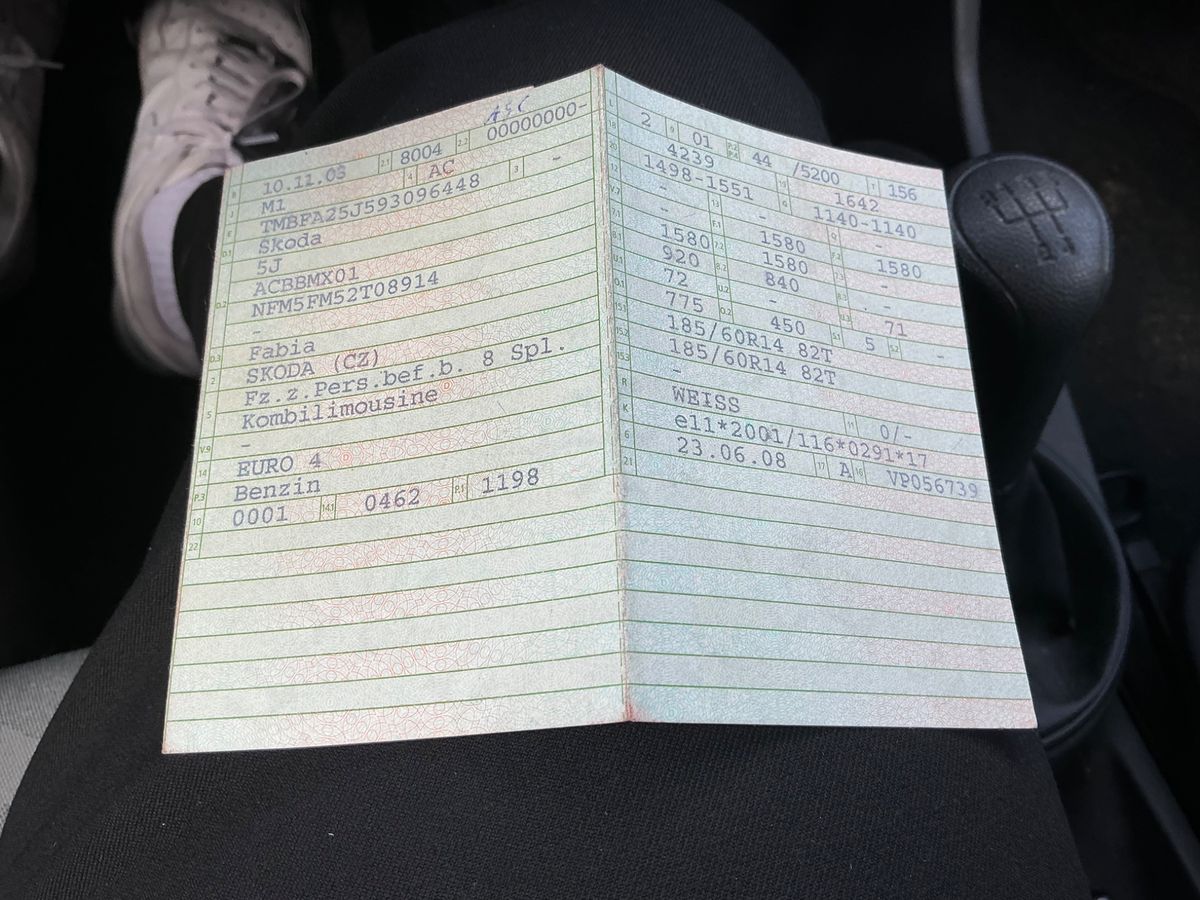 ASC
B 10.11.08 2.1 8004 2.2 00000000-
J M1 4 AC 3 -
E TMBFA25J593096448
D.1 Skoda
5J
D.2 ACBBMX01
NFM5FM52T08914
-
D.3 Fabia
2 SKODA (CZ)
5 Fz.z.Pers.bef.b. 8 Spl.
Kombilimousine
V.9 -
14 EURO 4
P.3 Benzin
10 0001 14.1 0462 P.1 1198
22
L 2 9 01 P.2 P.4 44 /5200 T 156
18 4239 19 1642
20 1498-1551 G 1140-1140
- 13 - Q -
V.7 - F.1 1580 F.2 1580
7.1 1580 7.2 1580 7.3 -
8.1 920 8.2 840 8.3 -
U.1 72 U.2 - U.3 71
O.1 775 O.2 450 S.1 5 S.2 -
15.1 185/60R14 82T
15.2 185/60R14 82T
15.3 -
R WEISS 11 0/-
K e11*2001/116*0291*17
6 23.06.08 17 A 16 VP056739
21